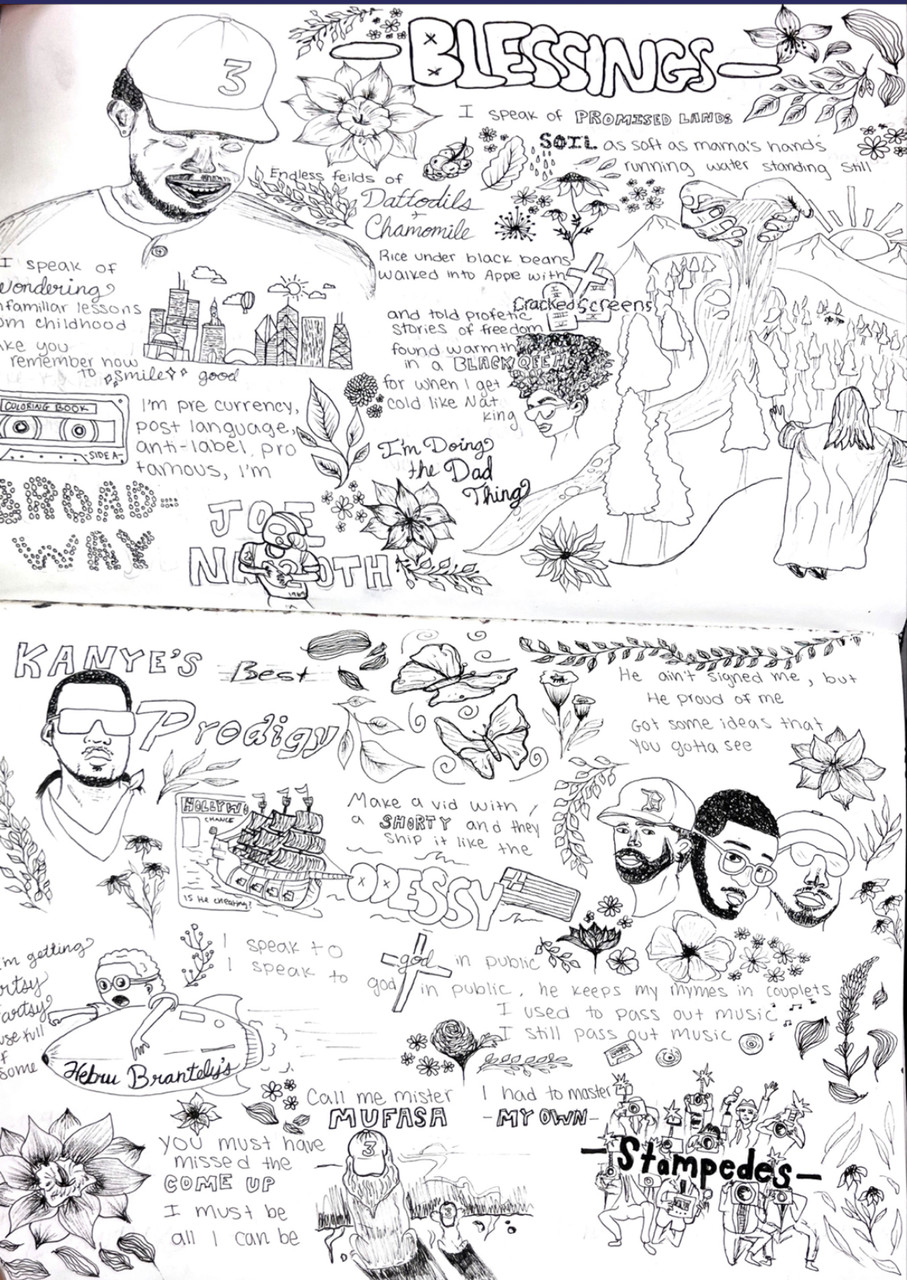 3
BLESSINGS
I speak of PROMISED LANDS
SOIL as soft as mama's hands
running water standing still
Endless feilds of
Daffodils
+
Chamomile
Rice under black beans
walked into Apple with
Cracked Screens
and told profetic
stories of freedom
found warmth
in a BLACK QEEN
for when I get
cold like Nat
king
I'm Doing
the Dad
Thing
I speak of
wondering
nfamiliar lessons
om childhood
ke you
remember now
to smile good
COLORING BOOK
SIDE A
I'm pre currency,
post language,
anti-label, pro
famous, I'm
BROAD-
WAY
JOE
NAMOTH
KANYE'S
Best
Prodigy
He ain't signed me, but
He proud of me
Got some ideas that
you gotta see
HOLLYW
CHANCE
IS He cheating?
Make a vid with
a SHORTY and they
ship it like the
ODESSY
'm getting
rtsy
artsy
use full
f
some
Hebru Brantely's
I speak to
I speak to
god in public
god in public, he keeps my rhymes in couplets
I used to pass out music
I still pass out music
Call me mister
MUFASA
I had to master
-MY OWN-
-Stampedes-
you must have
missed the
COME UP
I must be
all I can be
3
3